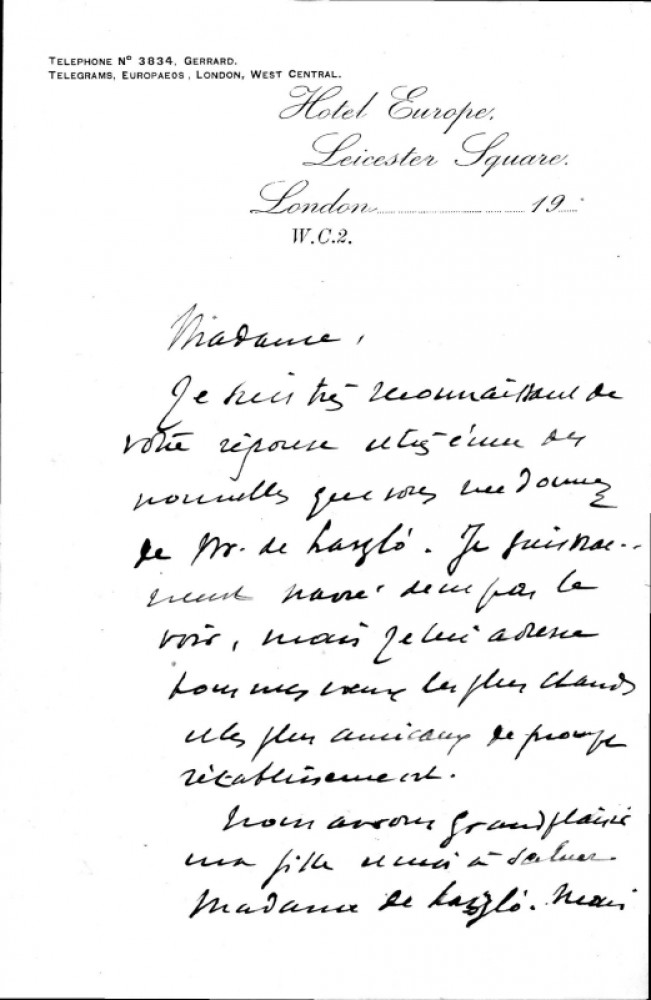 TELEPHONE Nº 3834, GERRARD.
TELEGRAMS, EUROPAEOS, LONDON, WEST CENTRAL.
Hotel Europe.
Leicester Square.
London 19
W.C.2.
Madame,
Je suis très reconnaissant de
votre réponse et très ému des
nouvelles que vous me donnez
de Mr. de László. Je suis vrai-
ment navré de ne pas le
voir, mais je lui adresse
tous mes vœux les plus chauds
et les plus amicaux de prompt
rétablissement.
Nous aurons grand plaisir
ma fille et moi à saluer
Madame de László. Mais